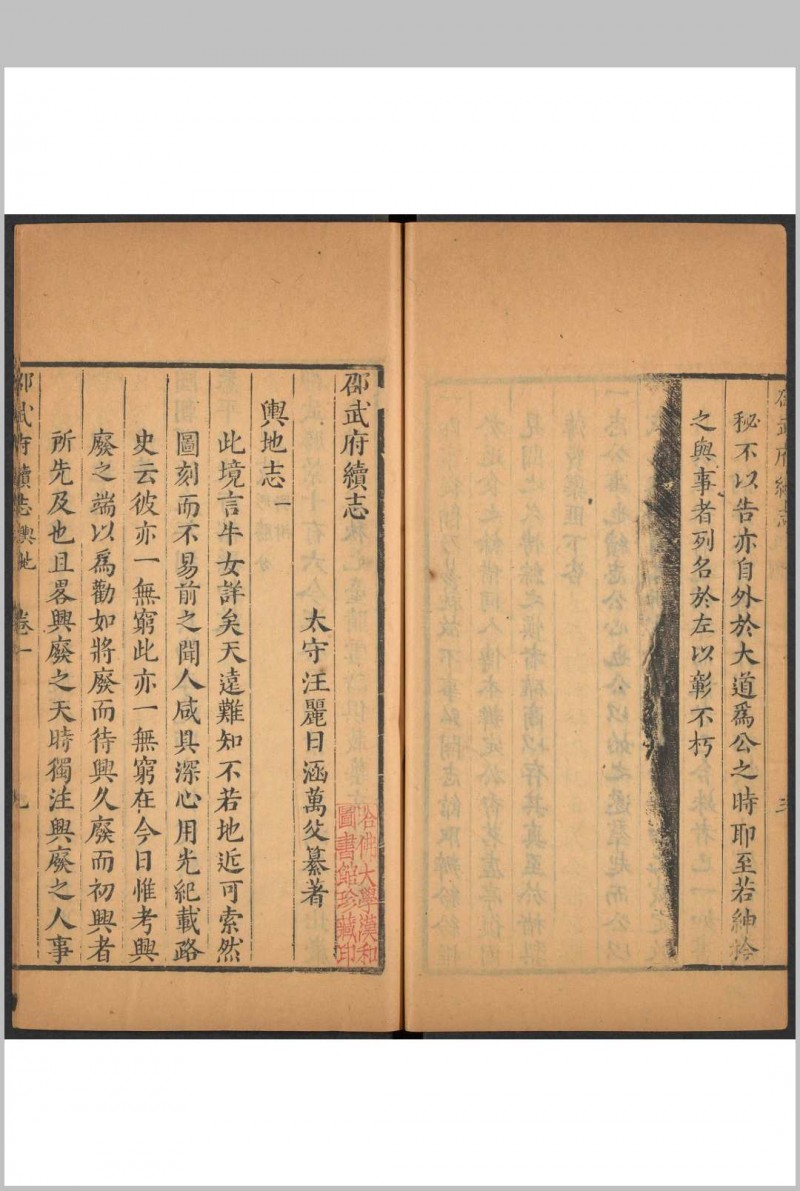 秘不以告亦自外於大道爲公之時耶至若紳衿
之與事者列名於左以彰不朽
邵武府續志
太守汪麗日涵萬父纂著
輿地志一
此境言牛女詳矣天遠難知不若地近可索然
圖刻而不易前之聞人咸具深心用先紀載路
史云彼亦一無窮此亦一無窮在今日惟考興
廢之端以爲勸如將廢而待興久廢而初興者
所先及也且畧興廢之天時獨注興廢之人事
邵武府續志 輿地 卷一 九
哈佛大學漢和
圖書館珍藏印